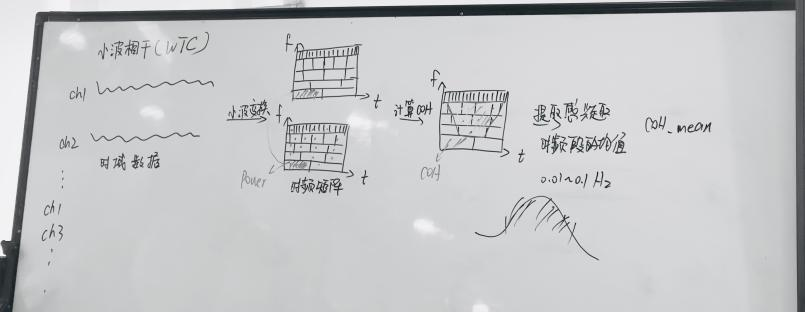 小波相干(WTC)
ch1
ch2
时域数据
ch1
ch3
小波变换
f
t
f
t
Power
时频矩阵
计算COH
f
t
COH
提取感兴趣
时频段的均值
COH_mean
0.01~0.1 Hz